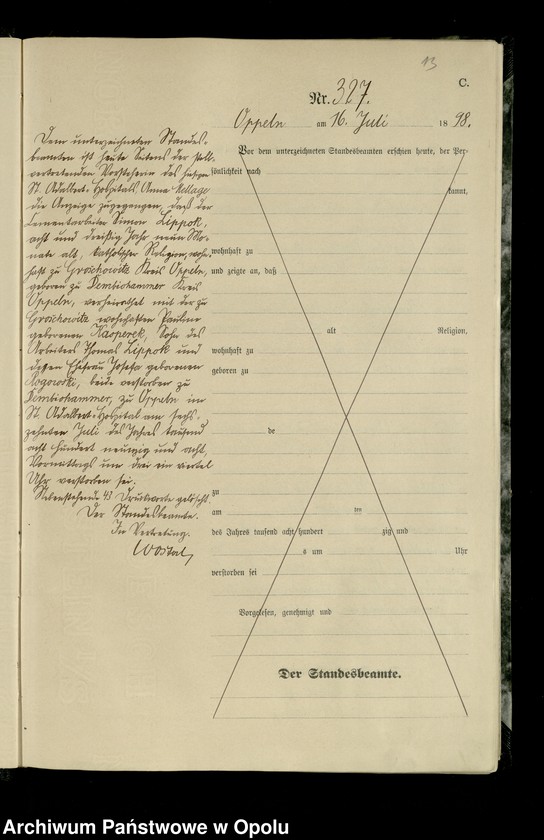 13
C.
Nr. 327.
Oppeln am 16. Juli 1898.
Dem unterzeichneten Standes-
beamten ist heute Seitens der stell-
vertretenden Vorsteherin des hiesigen
St. Adalbert-Hospitals Anna
die Anzeige zugegangen, daß der
Cementarbeiter Simon Lippok,
acht und dreißig Jahr neun Mo-
nate alt, katholischer Religion, wohn-
haft zu Groschowitz Kreis Oppeln,
geboren zu Dembiohammer Kreis
Oppeln, verheirathet mit der zu
Groschowitz wohnhaften Pauline
geborenen Kasperek, Sohn des
Arbeiters Thomas Lippok und
dessen Ehefrau Josefa geborenen
Rogowski, beide verstorben zu
Dembiohammer, zu Oppeln im
St. Adalbert-Hospital am sechs-
zehnten Juli des Jahres tausend
acht hundert neunzig und acht,
Vormittags um drei ein viertel
Uhr verstorben sei.
Nebenstehende 43 Druckworte gelöscht.
Der Standesbeamte.
In Vertretung.
Vor dem unterzeichneten Standesbeamten erschien heute, der Per-
sönlichkeit nach
kannt,
wohnhaft zu
und zeigte an, daß
alt Religion,
wohnhaft zu
geboren zu
de
zu
am ten
des Jahres tausend acht hundert zig und
s um Uhr
verstorben sei
Vorgelesen, genehmigt und
Der Standesbeamte.
Archiwum Państwowe w Opolu